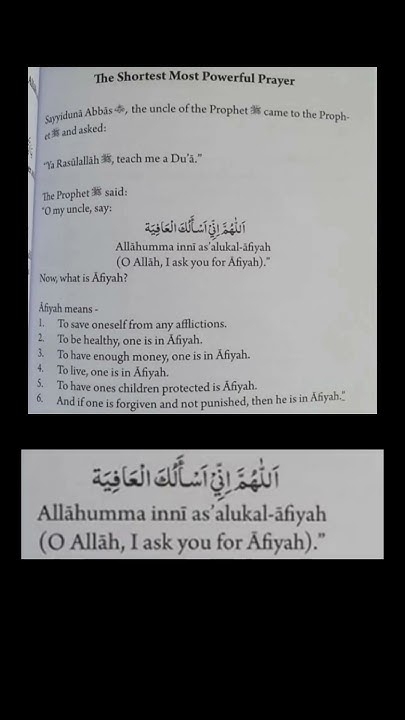 The Shortest Most Powerful Prayer
Sayyidunā Abbās ؓ, the uncle of the Prophet ﷺ came to the Proph-
et ﷺ and asked:
“Ya Rasūlallāh ﷺ, teach me a Du’ā.”
The Prophet ﷺ said:
“O my uncle, say:
اَللّٰهُمَّ اِنِّيْ اَسْأَلُكَ الْعَافِيَةَ
Allāhumma innī as’alukal-āfiyah
(O Allāh, I ask you for Āfiyah).”
Now, what is Āfiyah?
Āfiyah means -
1. To save oneself from any afflictions.
2. To be healthy, one is in Āfiyah.
3. To have enough money, one is in Āfiyah.
4. To live, one is in Āfiyah.
5. To have ones children protected is Āfiyah.
6. And if one is forgiven and not punished, then he is in Āfiyah.”
اَللّٰهُمَّ اِنِّيْ اَسْأَلُكَ الْعَافِيَةَ
Allāhumma innī as’alukal-āfiyah
(O Allāh, I ask you for Āfiyah).”